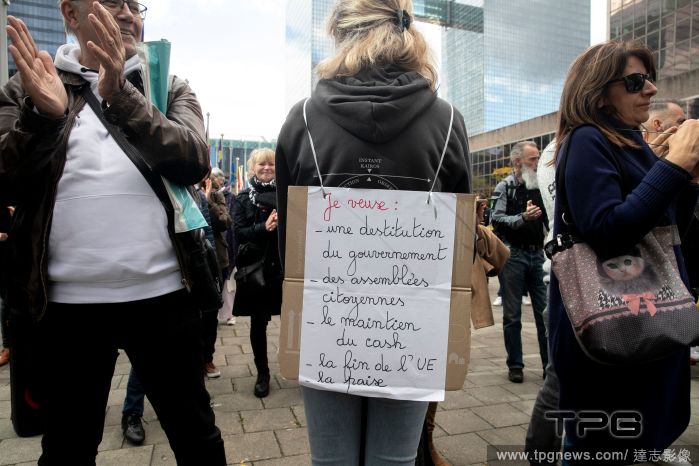 INSTANT
KAIROS
Je veuse :
- une destitution
du gouvernement
- des assemblées
citoyennes
- le maintien
du cash
- la fin de l'UE
- la paise
TPG
www.tpgnews.com/ 達志影像